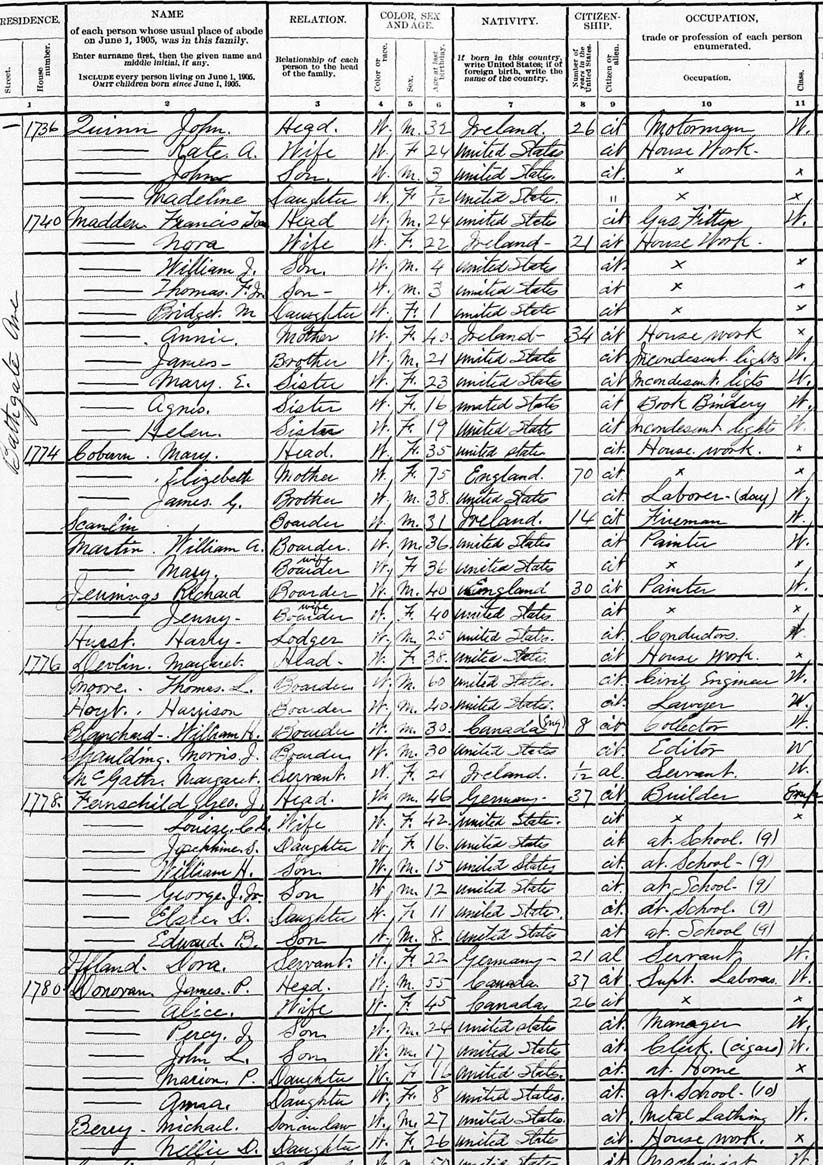 RESIDENCE. NAME RELATION. COLOR, SEX AND AGE. NATIVITY. CITIZEN-SHIP. OCCUPATION,
of each person whose usual place of abode on June 1, 1905, was in this family.
Enter surname first, then the given name and middle initial, if any.
INCLUDE every person living on June 1, 1905. OMIT children born since June 1, 1905.
Relationship of each person to the head of the family.
If born in this country, write United States; if of foreign birth, write the name of the country.
trade or profession of each person enumerated.
Street. House number. Color or race. Sex. Age at last birthday. Number of years in the United States. Citizen or alien. Occupation. Class.
1 2 3 4 5 6 7 8 9 10 11
Bathgate Ave
1736 Quinn John. Head. W. M. 32 Ireland. 26 cit Motorman W.
Kate A. Wife W. F 24 United States cit House Work.
John Son. W. M. 3 United States cit x x
Madeline Daughter W. F 7/12 United States. " x x
1740 Madden Francis Head W. M. 24 United State cit Gas Fitter W.
Nora Wife W. F. 22 Ireland- 21 cit House Work.
William J. Son. W. M. 4 United States cit x x
Thomas. F. Jr Son- W. M. 3 United States cit x x
Bridget. M Daughter W. F 1 United State cit x x
Annie. Mother W. F. 40. Ireland- 34 cit House work x
James- Brother W. M. 21 United State cit Incondesent lights W.
Mary. E. Sister W. F. 23 United State cit Incondesent. ligts W.
Agnes. Sister W. F. 16 United State cit Book Bindery W.
Helen. Sister W. F. 19 United State cit Incondesent lights W.
1774 Coburn. Mary. Head. W. F. 35 United state cit. House. work. x
Elizabeth Mother W. F. 75 England. 70 cit x x
James. G. Brother W. M. 38. United States cit Laborer-(day) W.
Scanlin Boarder W. M. 31 Ireland. 14 cit Fireman W.
Martin. William A. Boarder. W. M. 36. United States cit Painter W.
Mary. Boarder wife W. F 36 United States cit x x
Jennings Richard Boarder W. M. 40 England 30 cit Painter W.
Jenny- Boarder wife W. F. 40 United States. cit x x
Hurst. Harry- Lodger W. M 25 United States. cit. Conductors. W.
1776 Devlin. Margaret. Head- W. F. 38. United State. cit House Work. x
Moore. Thomas. L. Boarder W. M. 60 United States. cit. Civil Engineer W.
Hoyt. Harrison Boarder W. M. 40 United States. cit. Lawyer W.
Blanchard- William H. Boarder W. M. 30. Canada (Eng) 8 cit Collector W.
Spaulding. Morris J. Boarder W. M. 30 United States cit Editor W
McGath. Margaret. Servant W. F. 21 Ireland. 1/12 al. Servant W.
1778. Fernschild Geo. J. Head. W. M. 46 Germany- 37 cit Builder Emp
Louise. Wife W. F. 42. United States. cit x x
Josephine S. Daughter W. F 16. United States cit. at School. (9)
William H. Son. W. M. 15 United States cit. at School- (9)
George. J. Jr. Son W. M. 12 United States cit. at School- (9)
Elsie. D. Daughter W. F. 11 United State. cit. at School. (9)
Edward B. Son W. M. 8. United States cit. at School (9)
Iffland- Dora. Servant. W. F. 22 Germany- 21 al Servant W.
1780 Donovan. James. P. Head. W. M. 55 Canada 37 cit. Supt. Labores W.
Alice. Wife W. F. 45 Canada. 26 cit x x
Percy. J. Son W. M. 24 United states cit. Manager W.
John L. Son W. M. 17 United States cit. Clerk. (cigars) W.
Marion. P. Daughter W. F 16 United States. cit. at Home x
Anna. Daughter W. F 8 United States. cit. at School- (10)
Berry- Michael. Son in law W. M. 27 United States. cit. Metal Lathing W.
Nellie D. Daughter W. F. 26 United State cit. House work. x